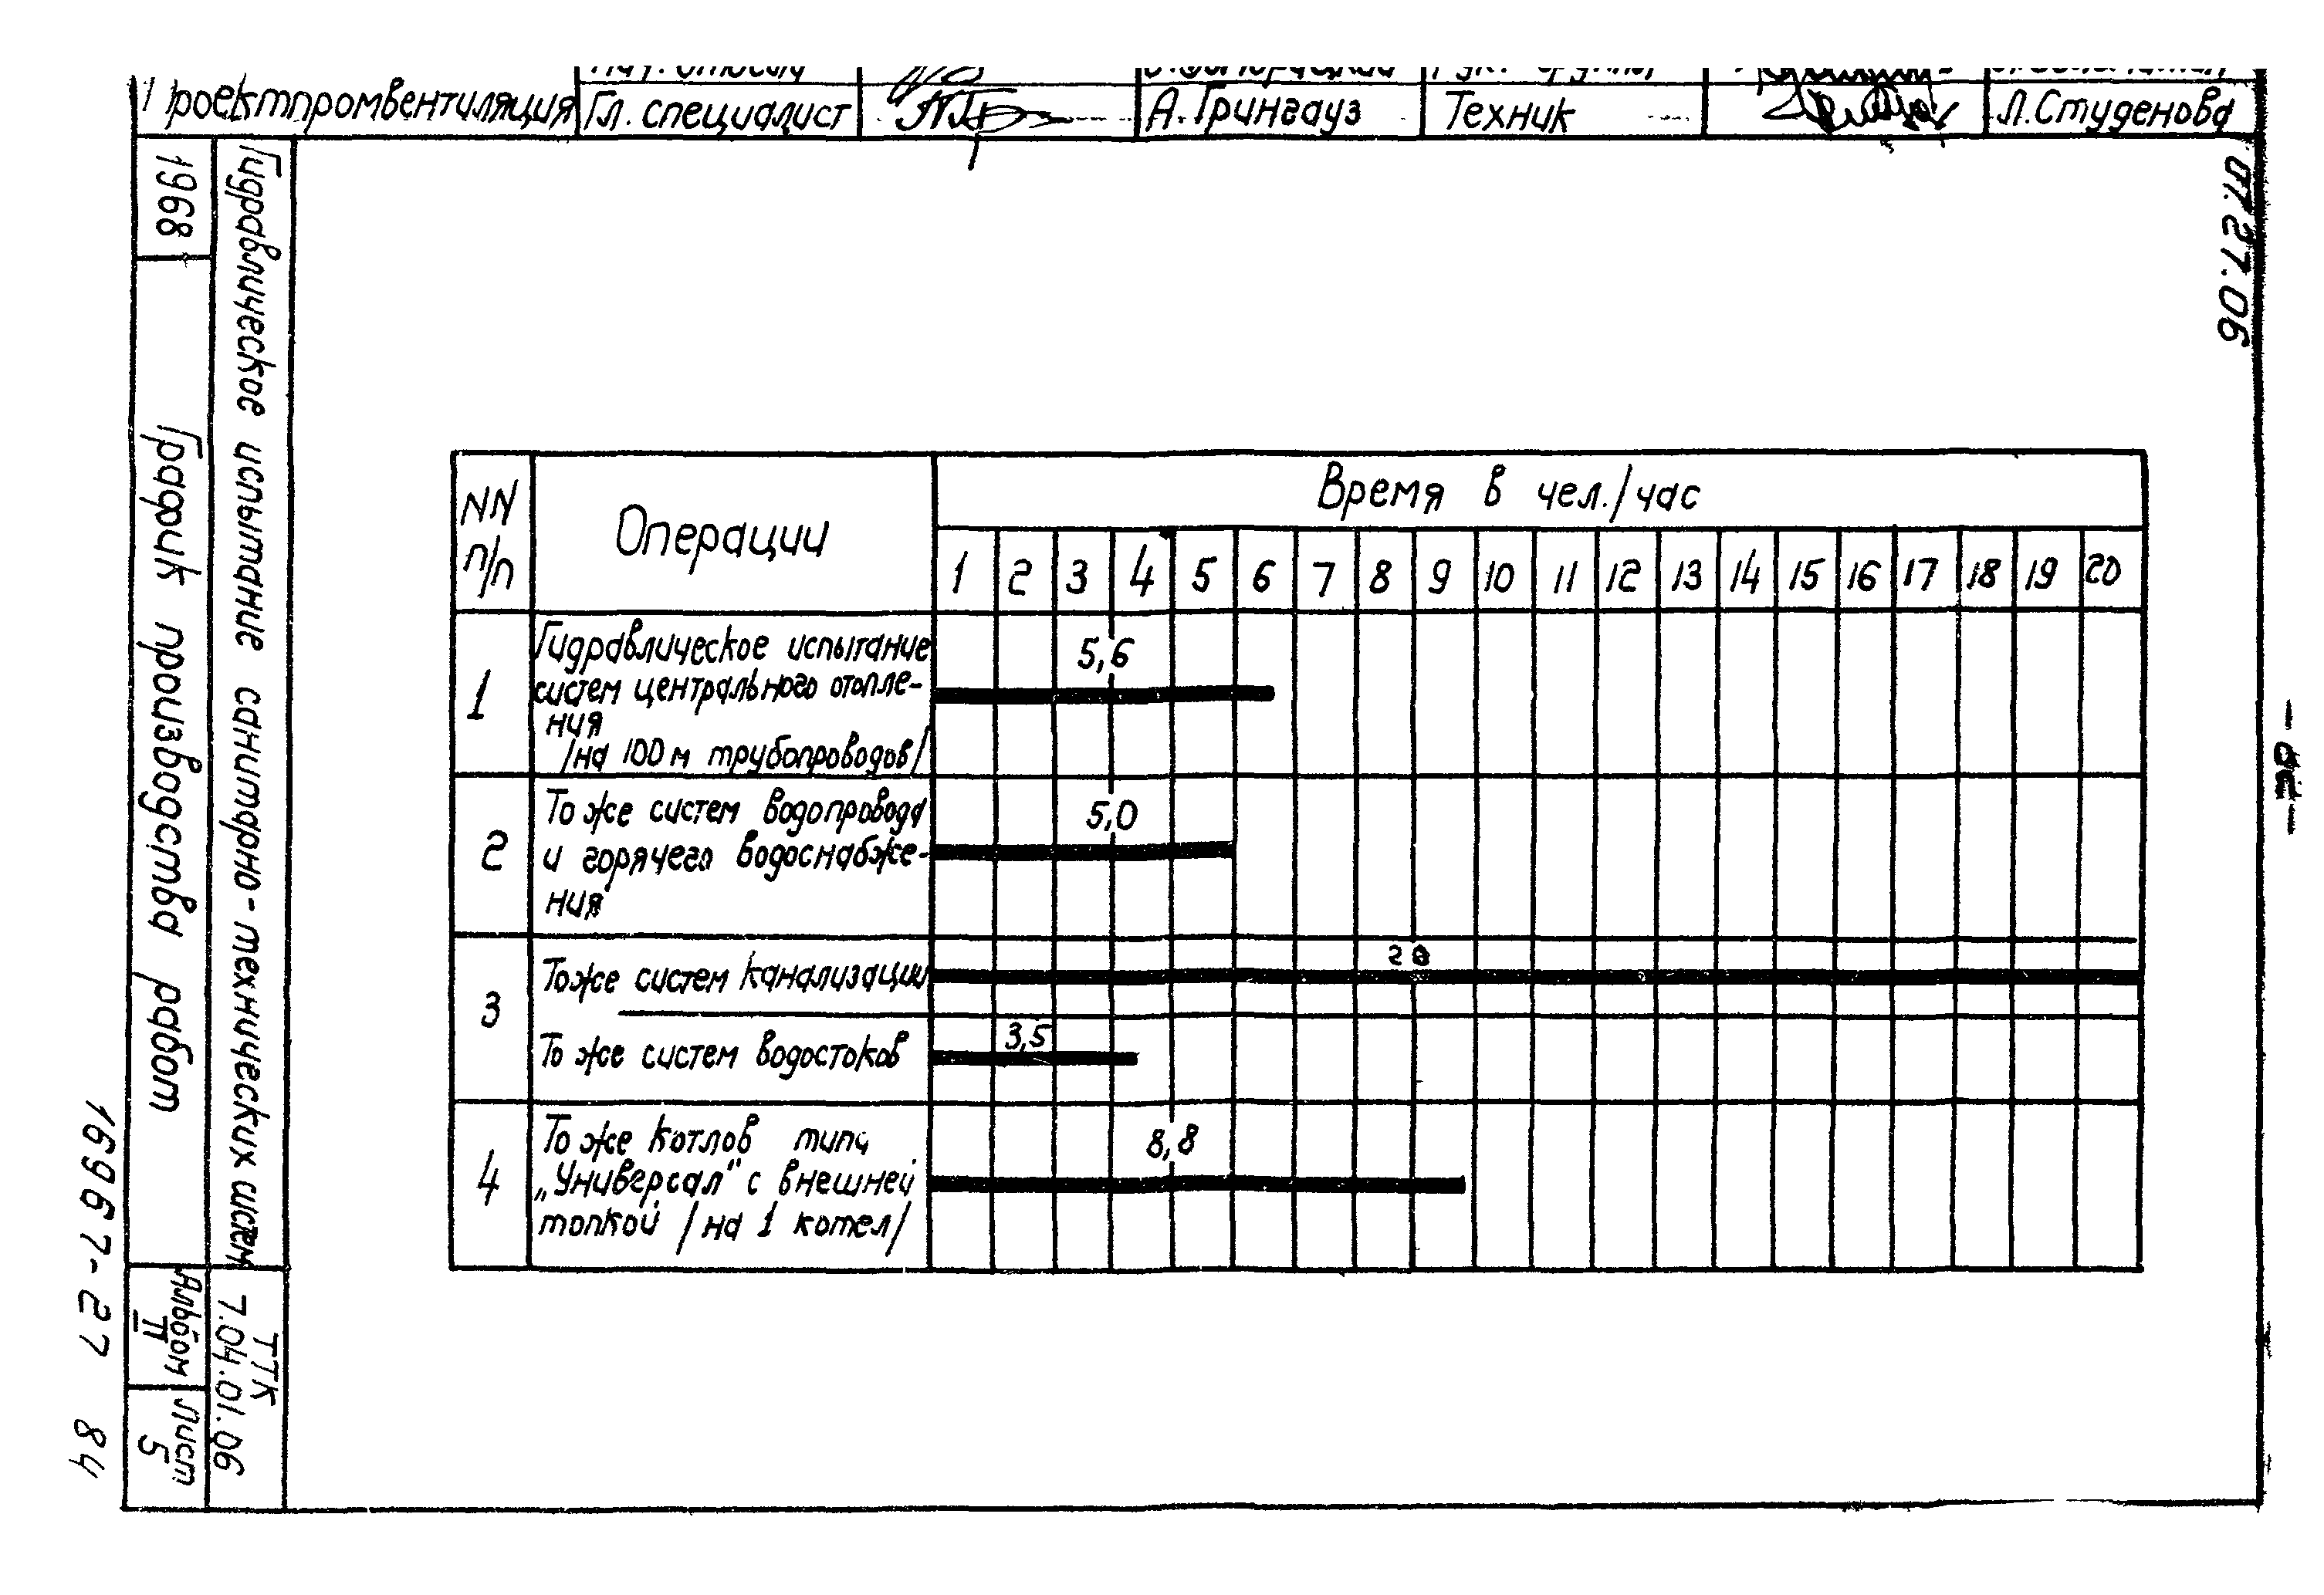 Проектпромвентиляция Гл. специалист А. Грингауз Техник Л. Студенова
07.27.06
1968
График производства работ
Гидравлическое испытание санитарно-технических систем
Альбом II
Лист 5
ТТК
7.04.01.06
16967-27 84
NN п/п
Операции
Время в чел./час
1 2 3 4 5 6 7 8 9 10 11 12 13 14 15 16 17 18 19 20
1
Гидравлическое испытание
систем центрального отопле-
ния
/на 100 м трубопроводов/
5,6
2
То же систем водопровода
и горячего водоснабже-
ния
5,0
3
То же систем канализации
20
То же систем водостоков
3,5
4
То же котлов типа
„Универсал" с внешней
топкой /на 1 котел/
8,8